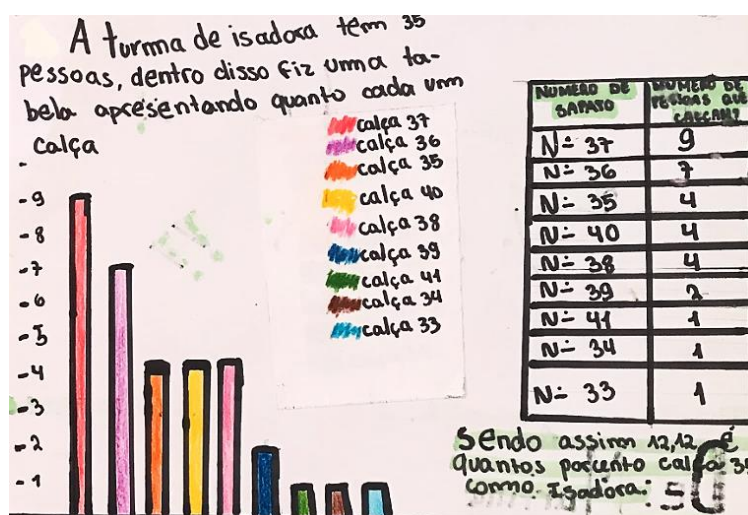 A turma de isadora têm 35
pessoas, dentro disso fiz uma ta-
bela apresentando quanto cada um
calça
calça 37
calça 36
calça 35
calça 40
calça 38
calça 39
calça 41
calça 34
calça 33
-9
-8
-7
-6
-5
-4
-3
-2
-1
NUMERO DE SAPATO
NUMERO DE PESSOAS QUE CALÇAM?
N- 37 9
N- 36 7
N- 35 4
N- 40 4
N- 38 4
N- 39 2
N- 41 1
N- 34 1
N- 33 1
Sendo assim 12,12 é
quantos porcento calça
como Isadora: